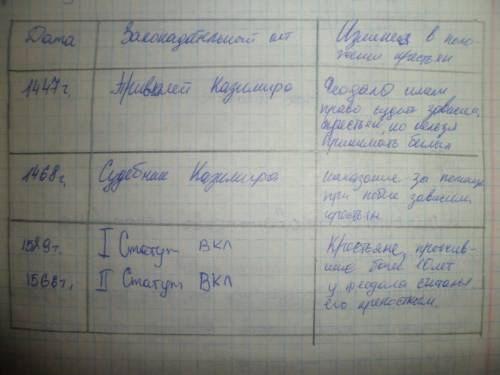 Дата
Законадательный акт
Изменен в поло
жении крестьян
1447 г.
Привелей Казимира
Феодала имели
право судить зависим.
крестьян, но нельзя
принимать беглых
1468 г.
Судебник Казимира
наказание за помощь
при побеге зависим.
крестьян
1529 г.
I Статут ВКЛ
1566 г.
II Статут ВКЛ
Крестьяне, прожив-
шие более 10 лет
у феодала считались
его крепостным.